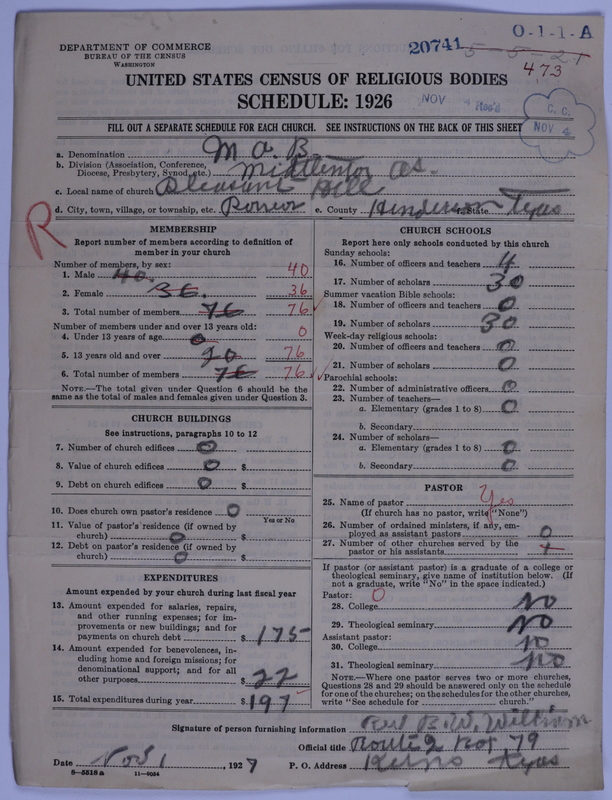 DEPARTMENT OF COMMERCE
BUREAU OF THE CENSUS
WASHINGTON
20741
5-5-21
473
O-1-1-A
UNITED STATES CENSUS OF RELIGIOUS BODIES
SCHEDULE: 1926
NOV 4 Rec'd
C. C.
NOV 4
FILL OUT A SEPARATE SCHEDULE FOR EACH CHURCH. SEE INSTRUCTIONS ON THE BACK OF THIS SHEET
a. Denomination M a B
b. Division (Association, Conference, Diocese, Presbytery, Synod, etc.) as.
c. Local name of church Pleasant Hill
d. City, town, village, or township, etc. e. County Henderson f. State Texas
R
MEMBERSHIP
Report number of members according to definition of
member in your church
Number of members, by sex:
1. Male 40. 40
2. Female 36. 36
3. Total number of members 76 76
Number of members under and over 13 years old:
4. Under 13 years of age 0 0
5. 13 years old and over 76
6. Total number of members 76 76
NOTE.—The total given under Question 6 should be the
same as the total of males and females given under Question 3.
CHURCH BUILDINGS
See instructions, paragraphs 10 to 12
7. Number of church edifices 0
8. Value of church edifices 0 $
9. Debt on church edifices 0 $
10. Does church own pastor's residence 0
Yes or No
11. Value of pastor's residence (if owned by
church) 0 $
12. Debt on pastor's residence (if owned by
church) 0 $
EXPENDITURES
Amount expended by your church during last fiscal year
13. Amount expended for salaries, repairs,
and other running expenses; for im-
provements or new buildings; and for
payments on church debt $ 175
14. Amount expended for benevolences, in-
cluding home and foreign missions; for
denominational support; and for all
other purposes $ 22
15. Total expenditures during year $ 197
CHURCH SCHOOLS
Report here only schools conducted by this church
Sunday schools:
16. Number of officers and teachers 4
17. Number of scholars 30
Summer vacation Bible schools:
18. Number of officers and teachers 0
19. Number of scholars 30
Week-day religious schools:
20. Number of officers and teachers 0
21. Number of scholars 0
Parochial schools:
22. Number of administrative officers 0
23. Number of teachers—
a. Elementary (grades 1 to 8) 0
b. Secondary
24. Number of scholars—
a. Elementary (grades 1 to 8) 0
b. Secondary 0
PASTOR
25. Name of pastor Yes
(If church has no pastor, write "None")
26. Number of ordained ministers, if any, em-
ployed as assistant pastors 0
27. Number of other churches served by the
pastor or his assistants
If pastor (or assistant pastor) is a graduate of a college or
theological seminary, give name of institution below. (If
not a graduate, write "No" in the space indicated.)
Pastor: 0
28. College No
29. Theological seminary No
Assistant pastor:
30. College no
31. Theological seminary no
NOTE.—Where one pastor serves two or more churches,
Questions 28 and 29 should be answered only on the schedule
for one of the churches; on the schedules for the other churches,
write "See schedule for church."
Signature of person furnishing information B. W.
Official title Route 2 Box 79
Date Nov 1, 1927 P. O. Address Texas
8—5518a 11—9054